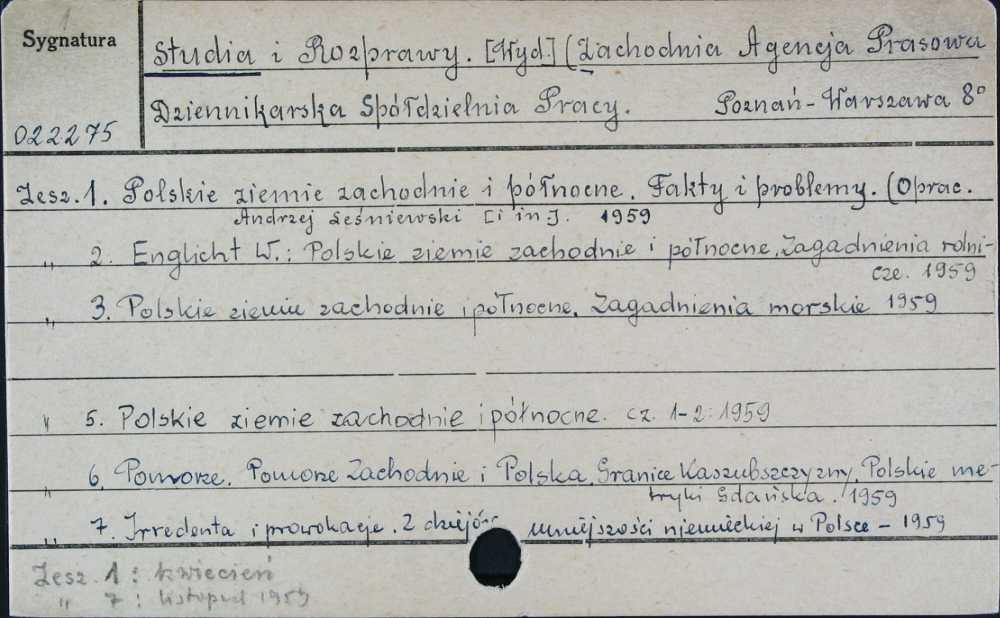 1
Sygnatura
Studia i Rozprawy. [Wyd.] (Zachodnia Agencja Prasowa
Dziennikarska Spółdzielnia Pracy. Poznań-Warszawa 8°
022275
Zesz. 1. Polskie ziemie zachodnie i północne. Fakty i problemy. (Oprac.
Andrzej Leśniewski [i in.]. 1959
„ 2. Englicht W.: Polskie ziemie zachodnie i północne. Zagadnienia rolni-
cze. 1959
„ 3. Polskie ziemie zachodnie i północne. Zagadnienia morskie 1959
„ 5. Polskie ziemie zachodnie i północne. cz. 1-2: 1959
„ 6. Pomorze. Pomorze Zachodnie i Polska. Granice Kaszubszczyzny. Polskie me-
tryki Gdańska. 1959
„ 7. Irredenta i prowokacje. Z dziejów mniejszości niemieckiej w Polsce - 1959
Zesz. 1: kwiecień
„ 7: listopad 1959